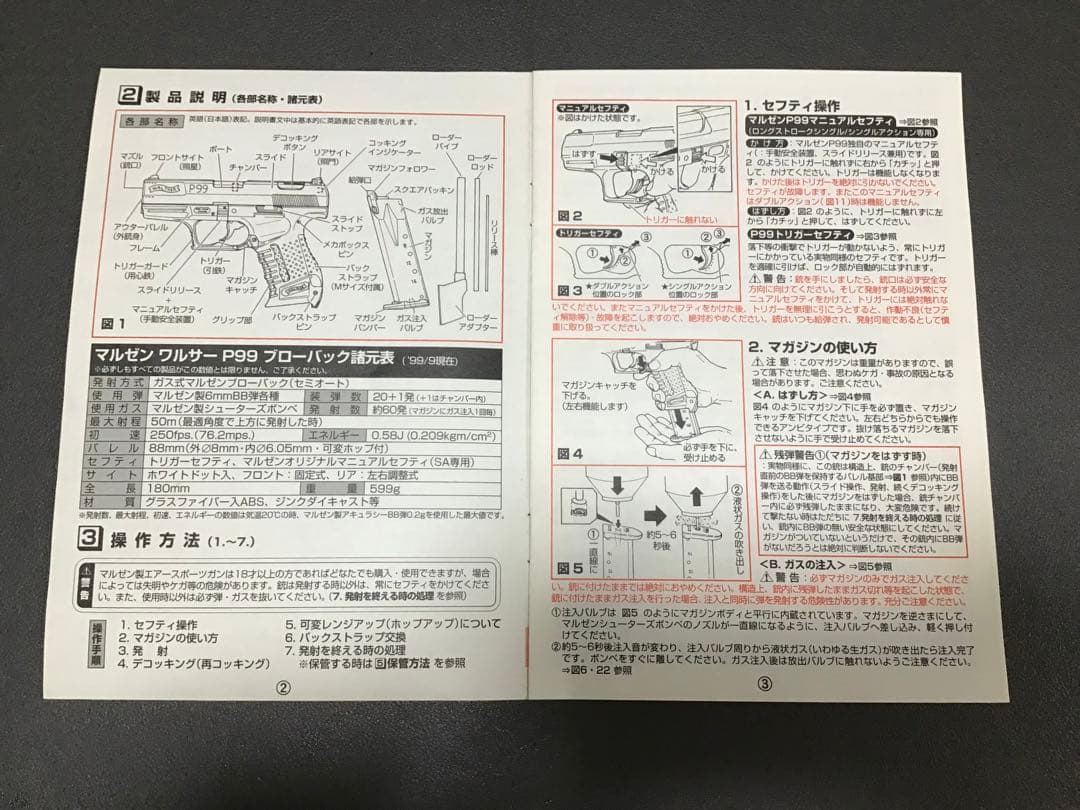 2 製品説明(各部名称・諸元表)
各部名称 英語(日本語)表記。説明書文中は基本的に英語表記で各部を示します。
マズル
(銃口)
フロントサイト
(照星)
ポート
チャンバー
スライド
デコッキング
ボタン
リアサイト
(照門)
コッキング
インジケーター
マガジンフォロワー
給弾口
スクエアパッキン
ローダー
パイプ
ローダー
ロッド
P99
アウターバレル
(外銃身)
フレーム
トリガーガード
(用心鉄)
スライドリリース
+
マニュアルセフティ
(手動安全装置)
トリガー
(引鉄)
マガジン
キャッチ
グリップ部
バックストラップ
ピン
スライド
ストップ
メカボックス
ピン
バック
ストラップ
(Mサイズ付属)
ガス放出
バルブ
マガジン
リリース棒
マガジン
バンパー
ガス注入
バルブ
ローダー
アダプター
図1
マルゼン ワルサー P99 ブローバック諸元表 ('99/9現在)
※必ずしもすべての製品がこの数値とは限りません、ご了承ください。
発射方式 ガス式マルゼンブローバック(セミオート)
使用弾 マルゼン製6mmBB弾各種 装弾数 20+1発(+1はチャンバー内)
使用ガス マルゼン製シューターズボンベ 発射数 約60発(マガジンにガス注入1回毎)
最大射程 50m(最適角度で上方に発射した時)
初速 250fps.(76.2mps.) エネルギー 0.58J(0.209kgm/cm²)
バレル 88mm(外∅8mm・内∅6.05mm・可変ホップ付)
セフティ トリガーセフティ、マルゼンオリジナルマニュアルセフティ(SA専用)
サイト ホワイトドット入、フロント:固定式、リア:左右調整式
全長 180mm 重量 599g
材質 グラスファイバー入ABS、ジンクダイキャスト等
※発射数、最大射程、初速、エネルギーの数値は気温20℃の時、マルゼン製アキュラシーBB弾0.2gを使用した最大値です。
3 操作方法(1.〜7.)
警告
マルゼン製エアースポーツガンは18才以上の方であればどなたでも購入・使用できますが、場合
によっては失明やケガ等の危険があります。銃は発射する時以外は、常にセフティをかけてくださ
い。また、使用時以外は必ず弾・ガスを抜いてください。(7. 発射を終える時の処理 を参照)
操作手順
1. セフティ操作
2. マガジンの使い方
3. 発 射
4. デコッキング(再コッキング)
5. 可変レンジアップ(ホップアップ)について
6. バックストラップ交換
7. 発射を終える時の処理
※保管する時は 5 保管方法 を参照
②
マニュアルセフティ
※図はかけた状態です。
はずす
かける
かける
図2
トリガーに触れない
トリガーセフティ
①
②
③
①
② ③
図3
★ダブルアクション
位置のロック部
★シングルアクション
位置のロック部
1. セフティ操作
マルゼンP99マニュアルセフティ ⇒図2参照
(ロングストロークシングル/シングルアクション専用)
かけ方:マルゼンP99独自のマニュアルセフテ
ィ(:手動安全装置、スライドリリース兼用)です。図
2 のようにトリガーに触れずに右から「カチッ」と押
して、かけてください。トリガーは機能しなくなりま
す。かけた後はトリガーを絶対に引かないでください。
セフティが故障します。またこのマニュアルセフティ
はダブルアクション(図11)時は機能しません。
はずし方:図2 のように、トリガーに触れずに左
から「カチッ」と押して、はずしてください。
P99トリガーセフティ ⇒図3参照
落下等の衝撃でトリガーが動かないよう、常にトリガ
ーにかかっている実物同様のセフティです。トリガー
を適確に引けば、ロック部が自動的にはずれます。
警告:銃を手にしましたら、銃口は必ず安全な
方向に向けてください。そして発射する時以外常にマ
ニュアルセフティをかけて、トリガーには絶対触れな
いでください。またマニュアルセフティをかけた後、トリガーを無理に引こうとすると、作動不良(セフテ
ィ解除等)・故障を起こしますので、絶対おやめください。銃はいつも給弾され、発射可能であるとして慎
重に取り扱ってください。
マガジンキャッチを
下げる。
(左右機能します)
必ず手を下に、
受け止める
図4
①一直線に
約5〜6
秒後
②液状ガスの吹き出し
図5
2. マガジンの使い方
注意:このマガジンは重量がありますので、誤
って落下させた場合、思わぬケガ・事故の原因となる
場合があります。ご注意ください。
<A. はずし方>⇒図4参照
図4 のようにマガジン下に手を必ず置き、マガジン
キャッチを下げてください。左右どちらからでも操作
できるアンビタイプです。抜け落ちるマガジンを落下
させないように手で受け止めてください。
残弾警告①(マガジンをはずす時)
:実物同様に、この銃は構造上、銃のチャンバー(発射
直前のBB弾を保持するバレル基部⇒図1 参照)内にBB
弾を送る動作(スライド操作、発射、続くデコッキング
操作)をした後にマガジンをはずした場合、銃チャンバ
ー内に必ず残弾したままになり、大変危険です。続け
て撃たない時はただちに 7.発射を終える時の処理 に従
い、銃内にBB弾の無い安全な状態にしてください。マ
ガジンがついていないというだけで、その銃内にBB弾
がないだろうとは絶対に判断しないでください。
<B. ガスの注入>⇒図5参照
警告:必ずマガジンのみでガス注入してくださ
い。銃に付けたままでは絶対におやめください。構造上、銃内に残弾したままガス切れ等を起こした状態で、
銃に付けたままガス注入を行った場合、注入と同時に弾を発射する危険性があります。充分ご注意ください。
①注入バルブは 図5 のようにマガジンボディと平行に内蔵されています。マガジンを逆さまにして、
マルゼンシューターズボンベのノズルが一直線になるように、注入バルブへ差し込み、軽く押し付
けてください。
②約5〜6秒後注入音が変わり、注入バルブ周りから液状ガス(いわゆる生ガス)が吹き出たら注入完了
です。ボンベをすぐに離してください。ガス注入後は放出バルブに触れないようご注意ください。
⇒図6・22 参照
③